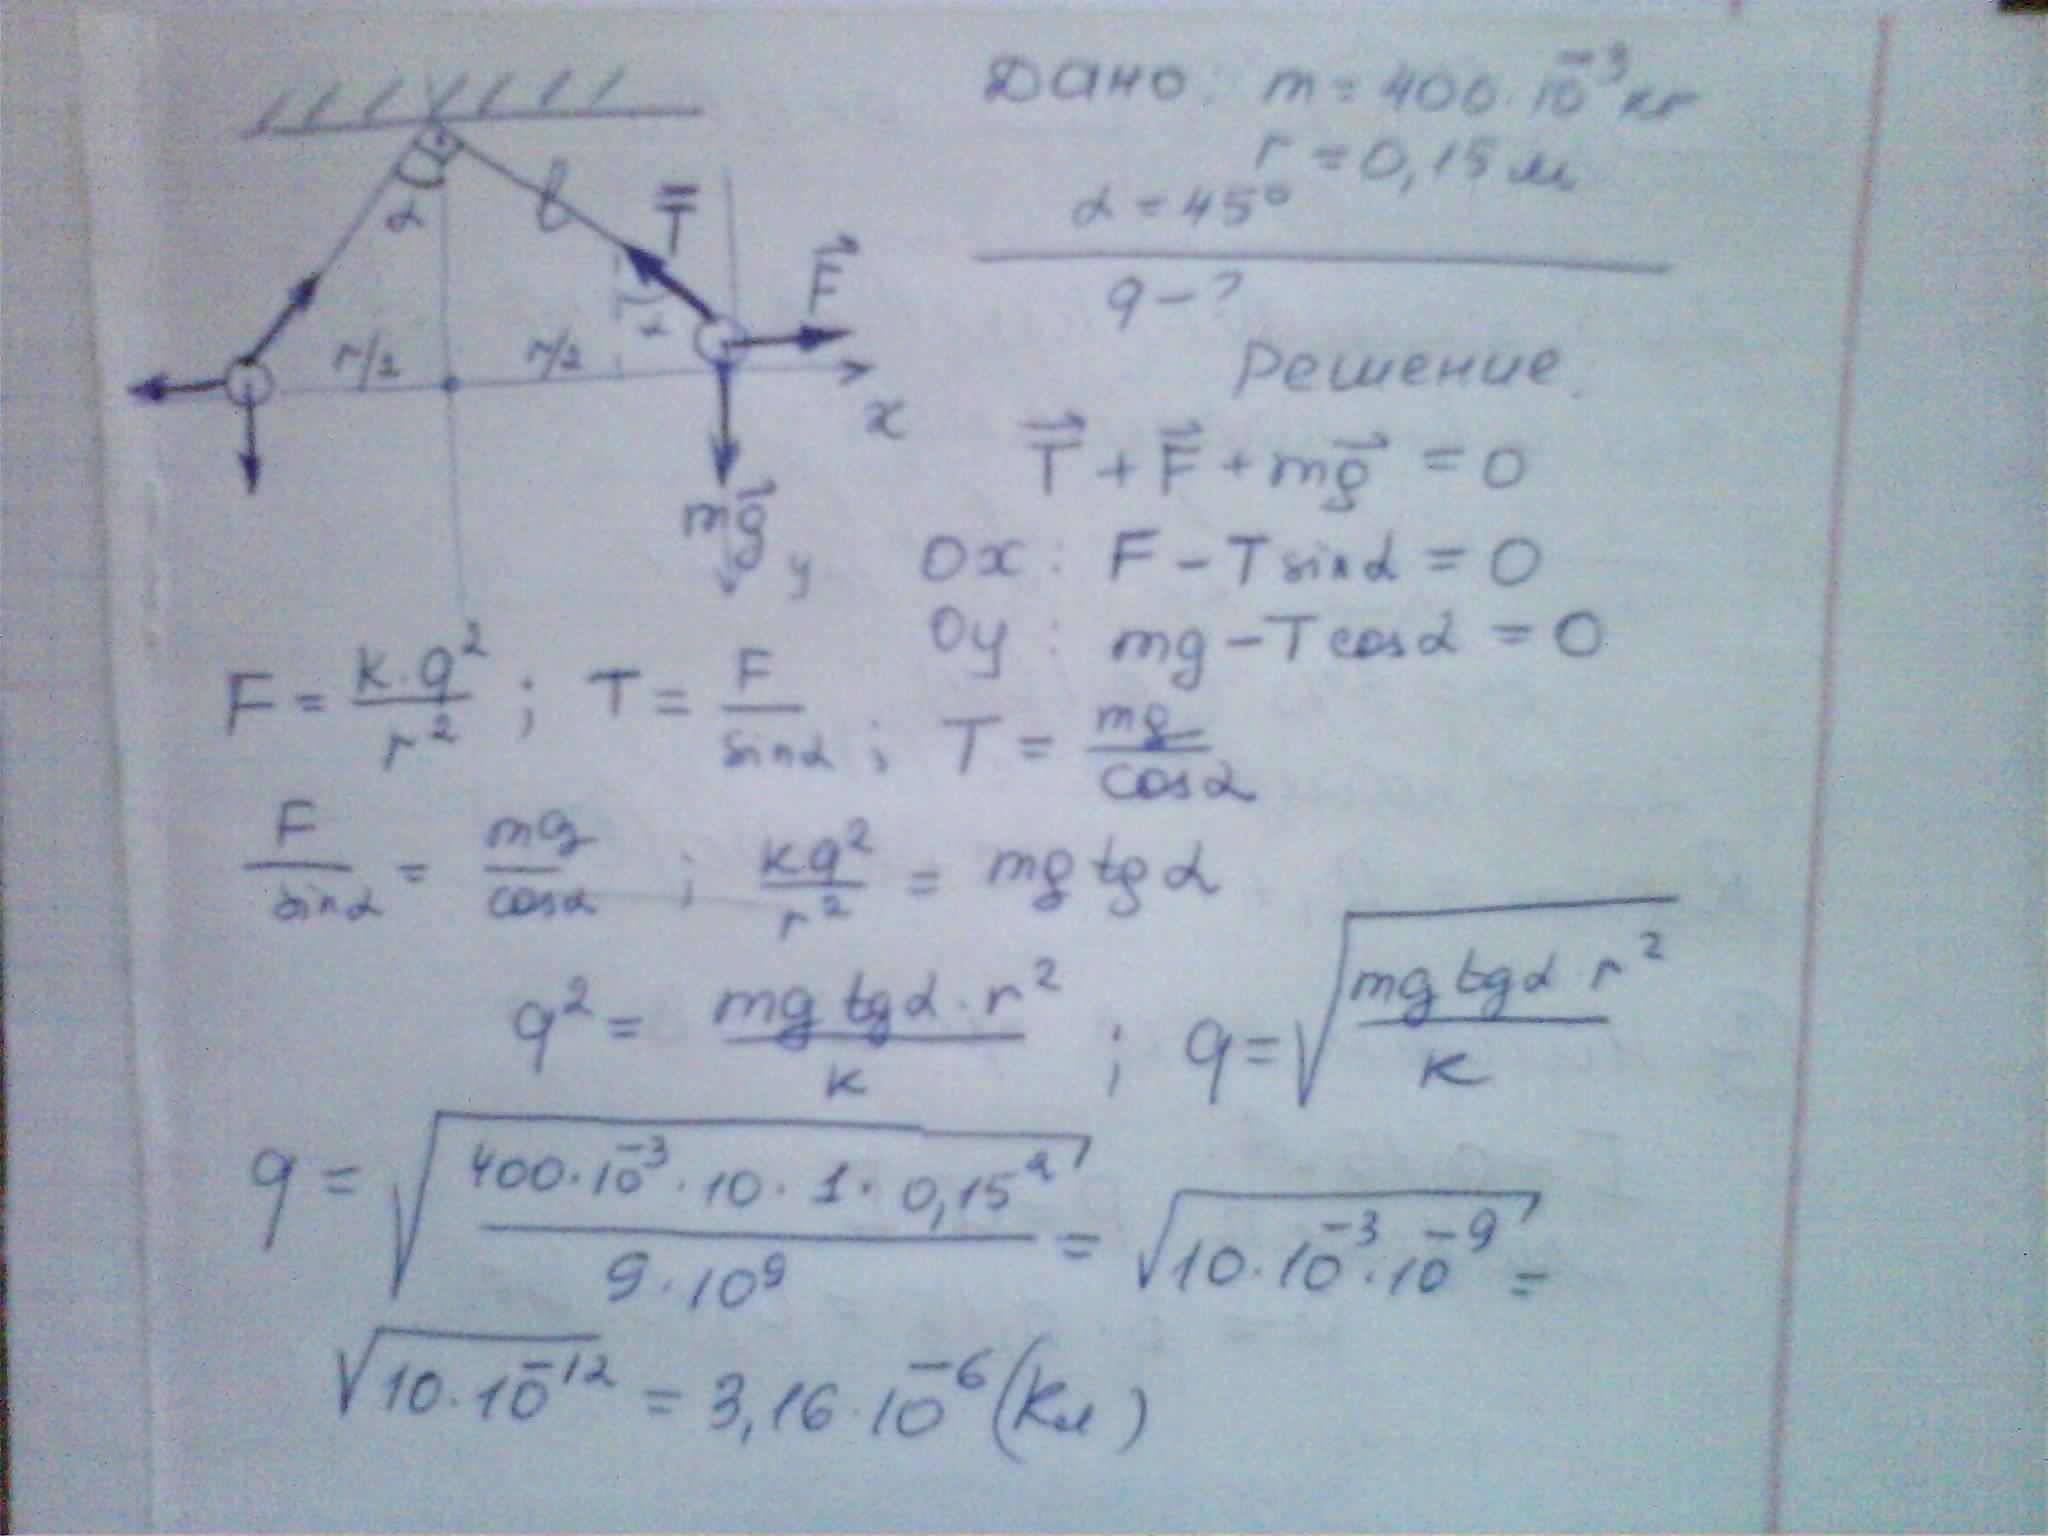 Дано: m = 400 · 10⁻³ кг
r = 0,15 м
α = 45°
q – ?
Решение.
α
l
T
F
r/2
r/2
α
x
mg
y
T + F + mg = 0
Ox: F – T sinα = 0
Oy: mg – T cosα = 0
F = k·q²/r² ; T = F/sinα ; T = mg/cosα
F/sinα = mg/cosα ; kq²/r² = mg tgα
q² = mg tgα · r²/k ; q = √(mg tgα r²/k)
q = √(400·10⁻³ · 10 · 1 · 0,15²/9·10⁹) = √(10·10⁻³·10⁻⁹) =
√(10·10⁻¹²) = 3,16·10⁻⁶ (Кл)